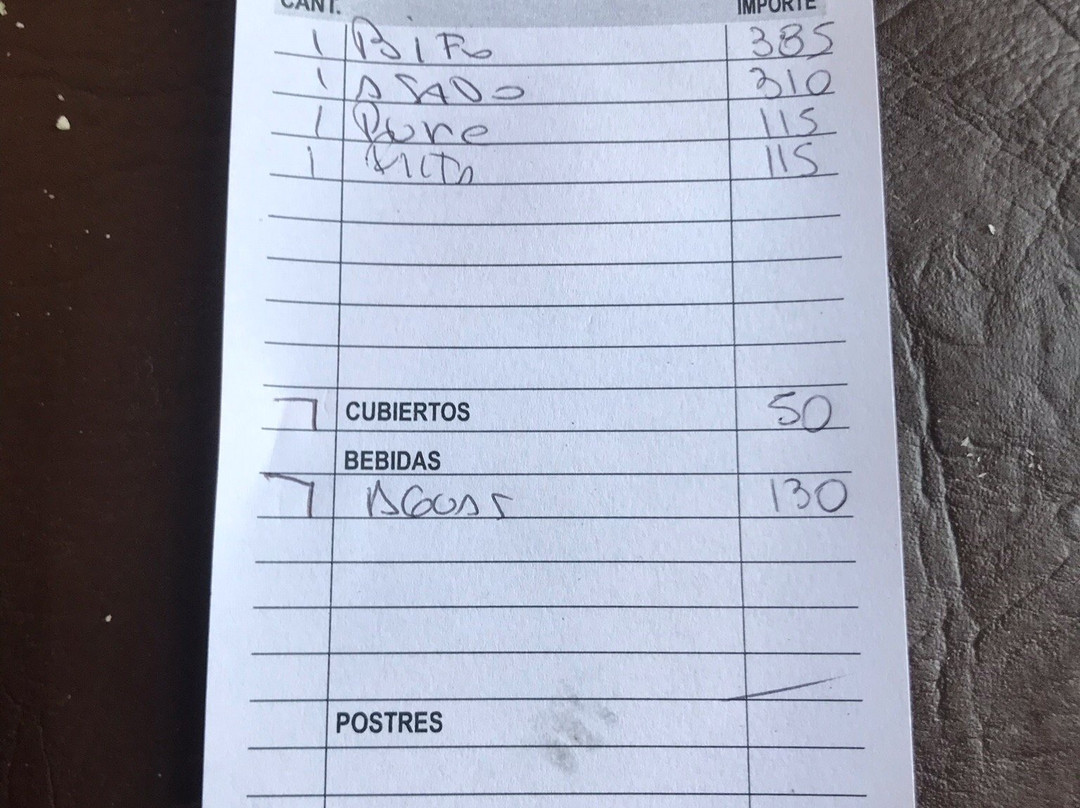 CANT. IMPORTE
1 Bife 385
1 ASADO 310
1 Pure 115
1 Mixta 115
CUBIERTOS 50
BEBIDAS
AGUAS 130
POSTRES